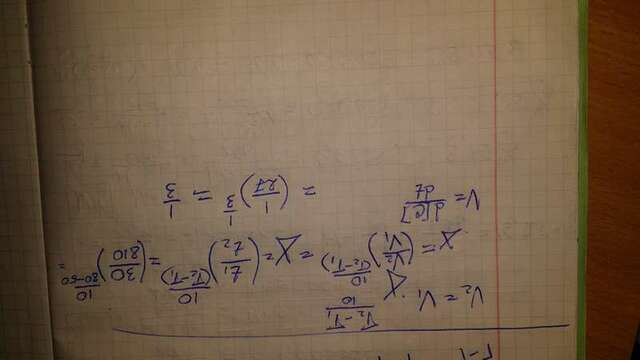 V₂ = V₁ · γ^((T₂-T₁)/10)
γ = (V₂/V₁)^(10/(T₂-T₁)) = γ = (t₁/t₂)^(10/(T₂-T₁)) = (30/810)^(10/(80-50)) =
V = d[C]/dt = (1/27)^(1/3) = 1/3